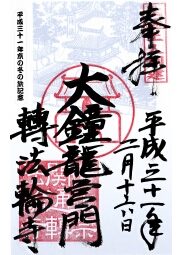 奉拝
平成三十一年
二月十六日
大鐘龍宮門
轉法輪寺
平成三十一年京の冬の旅記念